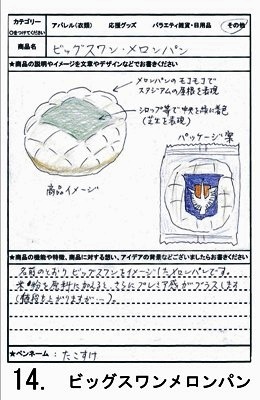 カテゴリー
○をつけてください
アパレル(衣類) 応援グッズ バラエティ雑貨・日用品 その他
商品名 ビッグスワン・メロンパン
★商品の説明やイメージを文章やデザインなどでお書きください
メロンパンのモコモコで
スタジアムの屋根を表現
シロップ等で中央を緑に着色
(芝生を表現)
パッケージ案
商品イメージ
★商品の機能や特徴、商品に対する想い、アイデアの背景などございましたらお書きください
名前のとおりビッグスワンをイメージしたメロンパンです。
米粉を原料に加えると、さらにプレミア感がプラスします
(値段も上がりますが…)。
★ペンネーム:たこすけ
14. ビッグスワンメロンパン